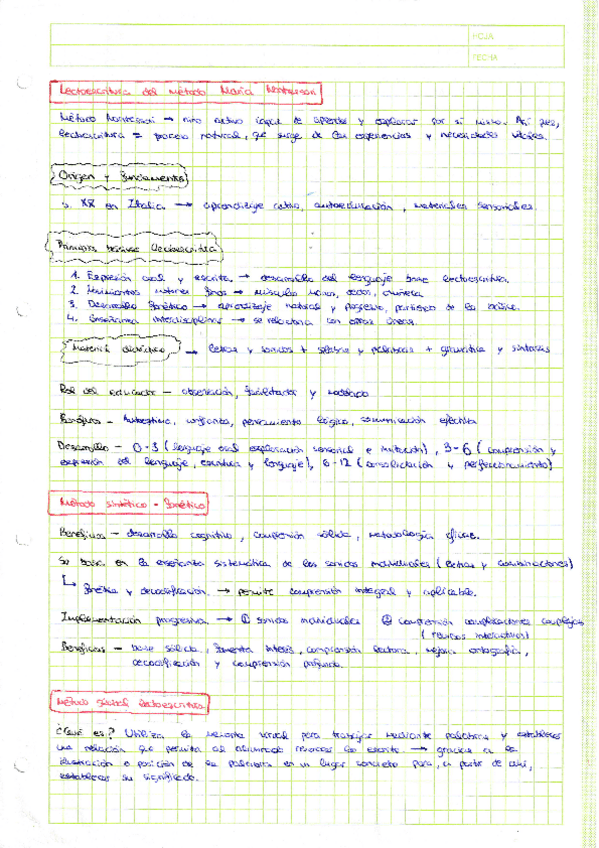 HOJA
FECHA
Lectoescritura del método María Montessori
Método Montessori → niño activo capaz de aprender y explorar por sí mismo. Así pues,
lectoescritura = proceso natural, que surge de las experiencias y necesidades vitales.
Origen y fundamentos
s. XX en Italia → aprendizaje activo, autoeducación, materiales sensoriales.
Principios básicos lectoescritura
1. Expresión oral y escrita → desarrollo del lenguaje base lectoescritura.
2. Movimientos motores finos → músculo mano, dedos, muñeca
3. Desarrollo fonético → aprendizaje natural y progresivo, partiendo de lo
4. Enseñanza interdisciplinar → se relaciona con otras áreas.
Material didáctico → letras y sonidos + sílabas y palabras + gramática y sintaxis
Rol del educador - observación, facilitador y modelado
Beneficios - Autoestima, confianza, pensamiento lógico, comunicación efectiva
Desarrollo - 0-3 (lenguaje oral exploración sensorial e imitación), 3-6 (comprensión y
expresión del lenguaje, escritura y lenguaje), 6-12 (consolidación y perfeccionamiento)
Método sintético - fonético
Beneficios - desarrollo cognitivo, comprensión sólida, metodología eficaz.
Se basa en la enseñanza sistemática de los sonidos individuales (letras y combinaciones)
↳ fonética y decodificación. → permite comprensión integral y aplicable.
Implementación progresiva → ① sonidos individuales ② comprensión combinaciones complejas
(recursos interactivos)
Beneficios - base sólida, fomenta interés, comprensión lectora, mejora ortografía,
decodificación y comprensión profunda.
Método global lectoescritura
¿Qué es? Utiliza la memoria visual para trabajar mediante palabras y establecer
una relación que permita al alumnado reconocer lo escrito → gracias a la
ilustración o posición de la palabra en un lugar concreto para, a partir de ahí,
establecer su significado.